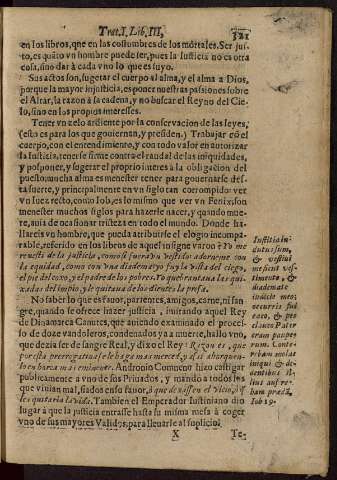 Trat. I, Lib. III,
321
en los libros, que en las costumbres de los mortales. Ser jus-
to, es quãto vn hombre puede ser, pues la Iusticia no es otra
cosa, sino dar à cada vno lo que es suyo.
Sus actos son, sugetar el cuerpo al alma, y el alma a Dios,
porque la mayor injusticia, es poner nuestras passiones sobre
el Altar, la razon à la cadena, y no buscar el Reyno del Cie-
lo, sino en los propios interesses.
Tener vn zelo ardiente por la conseruacion de las leyes,
(esto es para los que gouiernan, y presiden.) Trabajar cõ el
cuerpo, con el entendimiento, y con todo valor en autorizar
la Iusticia, tenerse firme contra el raudal de las iniquidades,
y posponer, y sugetar el proprio interes à la obligacion del
puesto; mucha alma es menester tener para gouernarse des-
ta suerte, y principalmente en vn siglo tan corrompido: ver
vn juez recto, como Iob, es lo mismo que ver vn Fenix; son
menester muchos siglos para hazerle nacer, y quando mue-
re, auia de ocasionar tristeza en todo el mundo. Donde ha-
llareis vn hombre, que pueda atribuirse el elogio incompara-
rable, referido en los libros de aquel insigne varon? Yo me
reuesti de la justicia, como si fuera vn vestido: adornéme con
la equidad, como con vna diadema: yo fuy la vista del ciego,
el pie del coxo, y el padre de los pobres. Yo quebrantaua las qui-
xadas del impio, y le quitaua de los dientes la presa.
No saber lo que es fauor, parientes, amigos, carne, ni san-
gre, quando se ofrece hazer justicia, imitando aquel Rey
de Dinamarca Canutes, que auiendo examinado el proces-
so de doze vandoleros, condenados ya a muerte, hallò vno,
que dezia ser de sangre Real, y dixo el Rey: Razon es, que
por esta prerrogatiua se le haga mas merced, y assi ahorquen-
lo en parte mas eminente. Andronio Comneno hizo castigar
publicamente a vno de sus Priuados, y mandò a todos los
que viuian mal,
les quitaria la vida. Tambien el Emperador Iustiniano dio
lugar à que la justicia entrasse hasta su misma mesa à coger
vno de sus mayores Validos, para lleuarle al suplicio.
X
Te-
Iustitia in-
dutus sum,
& vestiui
me sicut ves-
timento, &
diademate
iudicio meo;
oculus fui
cæco, & pes
claudo. Pater
eram paupe-
rum. Conte-
rebam molas
iniqui & de
dentibus il-
lius aufere-
bam prædã,
Iob 29.